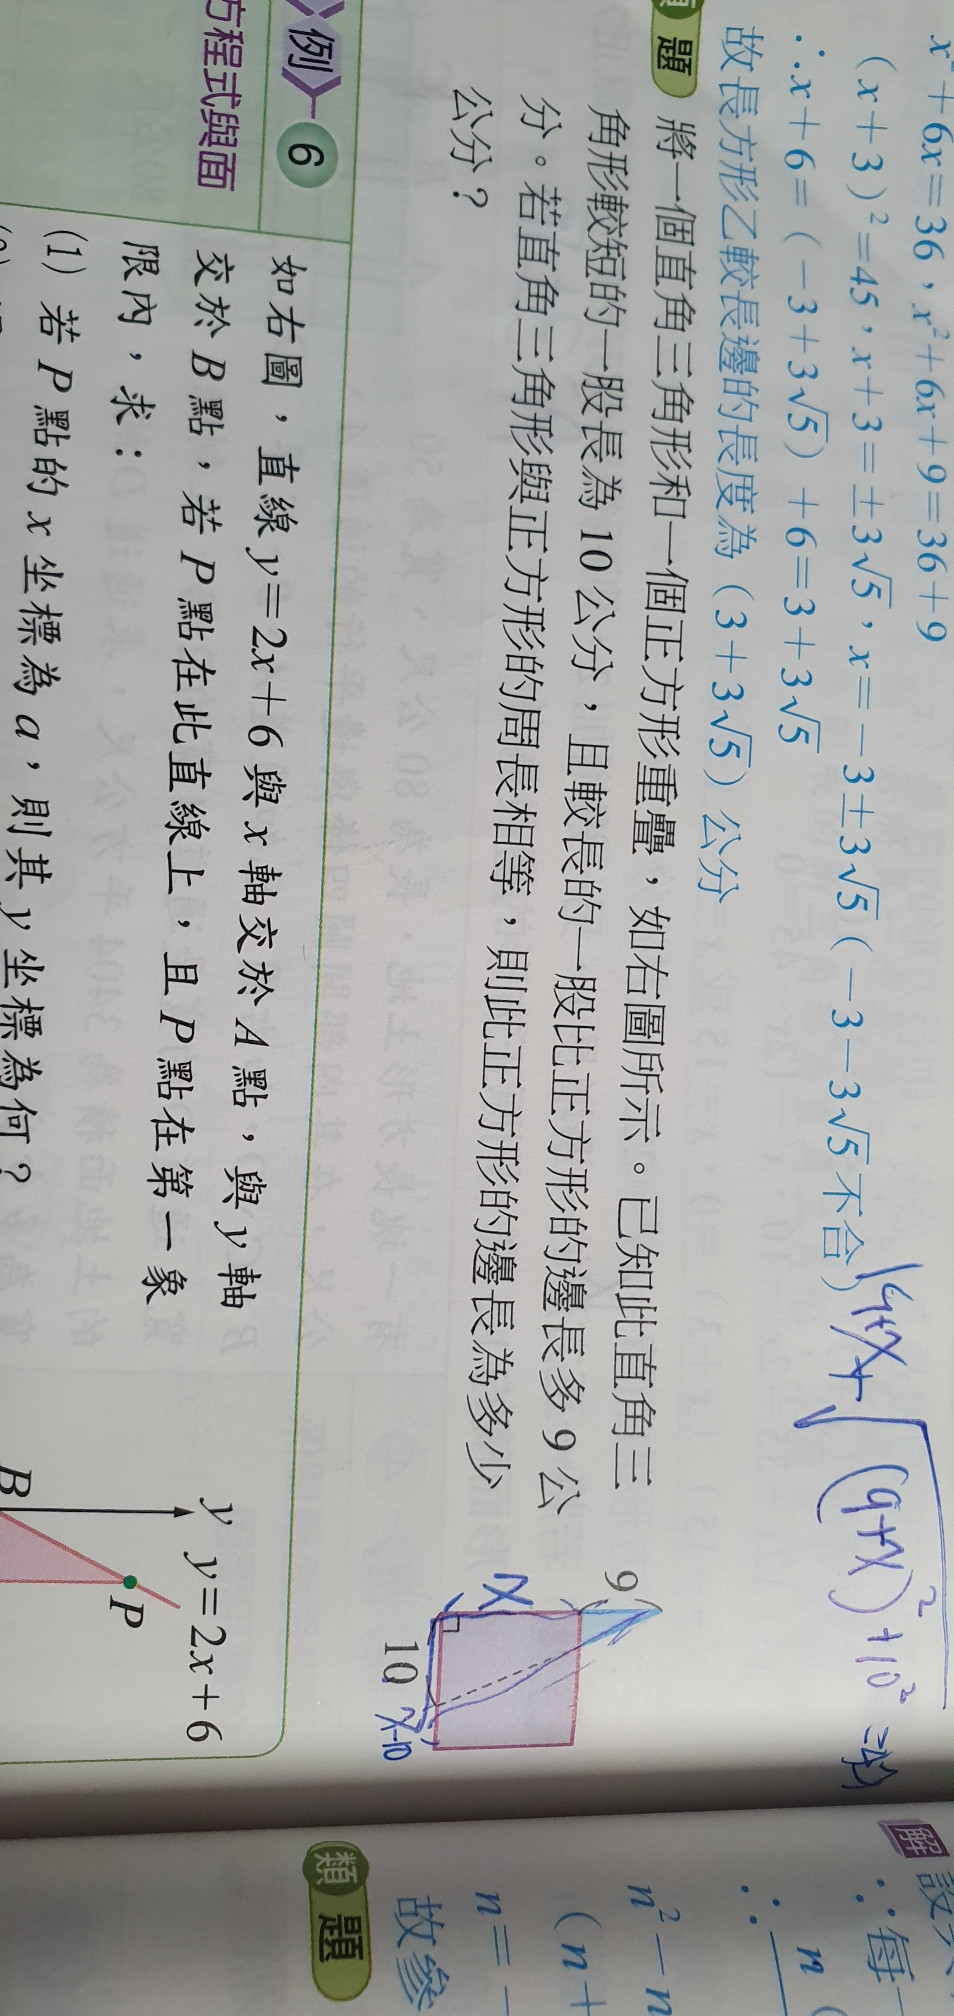 x²+6x=36，x²+6x+9=36+9
(x+3)²=45，x+3=±3√5，x=-3±3√5(-3-3√5不合)
∴x+6=(-3+3√5)+6=3+3√5
故長方形乙較長邊的長度為(3+3√5)公分
19+x+√(9+x)²+10²=4x
題 將一個直角三角形和一個正方形重疊，如右圖所示。已知此直角三
角形較短的一股長為10公分，且較長的一股比正方形的邊長多9公
分。若直角三角形與正方形的周長相等，則此正方形的邊長為多少
公分？
9
x
10
x-10
例 6
方程式與面
如右圖，直線y=2x+6與x軸交於A點，與y軸
交於B點，若P點在此直線上，且P點在第一象
限內，求：
(1) 若P點的x坐標為a，則其y坐標為何？
y
y=2x+6
P
B
解
∵每一
∴
n
n²-n
(n+
n=-
故參
類題